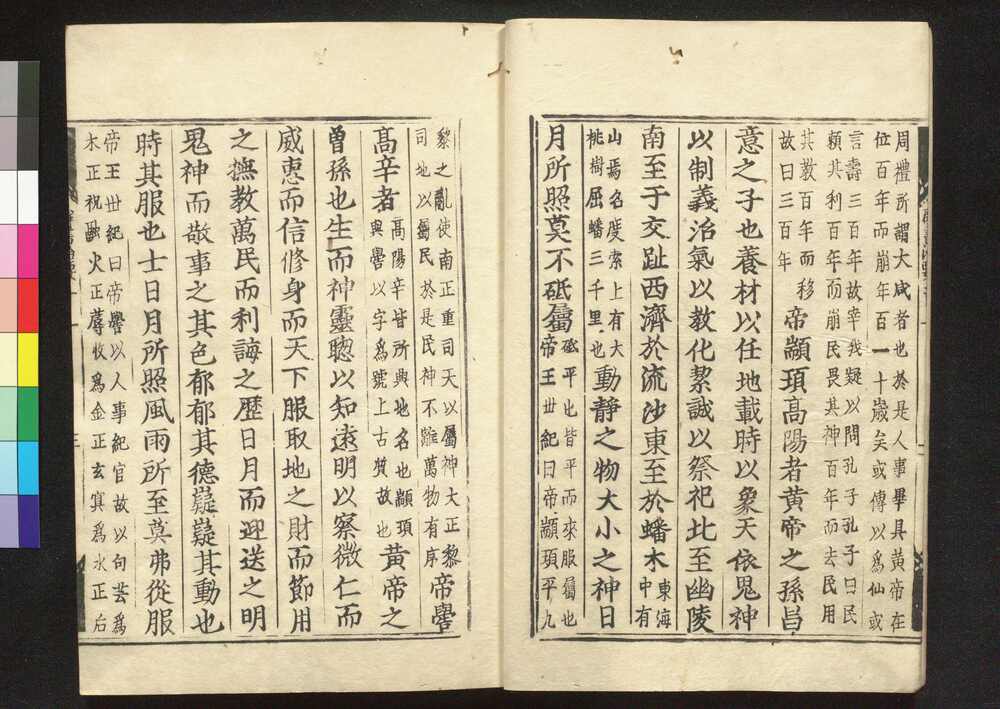 周禮所謂大咸者也於是人事畢具黃帝在
位百年而崩年百一十歲矣或傳以爲仙或
言壽三百年故宰我疑以問孔子孔子曰民
頼其利百年而崩民畏其神百年而去民用
其教百年而移
故曰三百年
帝顓頊高陽者黃帝之孫昌
意之子也養材以任地載時以象天依鬼神
以制義治氣以教化絜誠以祭祀北至幽陵
南至于交趾西濟於流沙東至於蟠木
東海
中有
山焉名度索上有大
桃樹屈蟠三千里也
動靜之物大小之神日
月所照莫不砥屬
砥平也皆平而來服屬也
帝王世紀曰帝顓頊平九
黎之亂使南正重司天以屬神火正黎
司地以屬民於是民神不雜萬物有序
帝嚳
高辛者
高陽辛皆所興地名也顓頊
與嚳以字爲號上古質故也
黃帝之
曾孫也生而神靈聰以知遠明以察微仁而
威惠而信修身而天下服取地之財而節用
之撫教萬民而利誨之歷日月而迎送之明
鬼神而敬事之其色郁郁其德嶷嶷其動也
時其服也士日月所照風雨所至莫弗從服
帝王世紀曰帝嚳以人事紀官故以句芒爲
木正祝融火正蓐收爲金正玄冥爲水正后